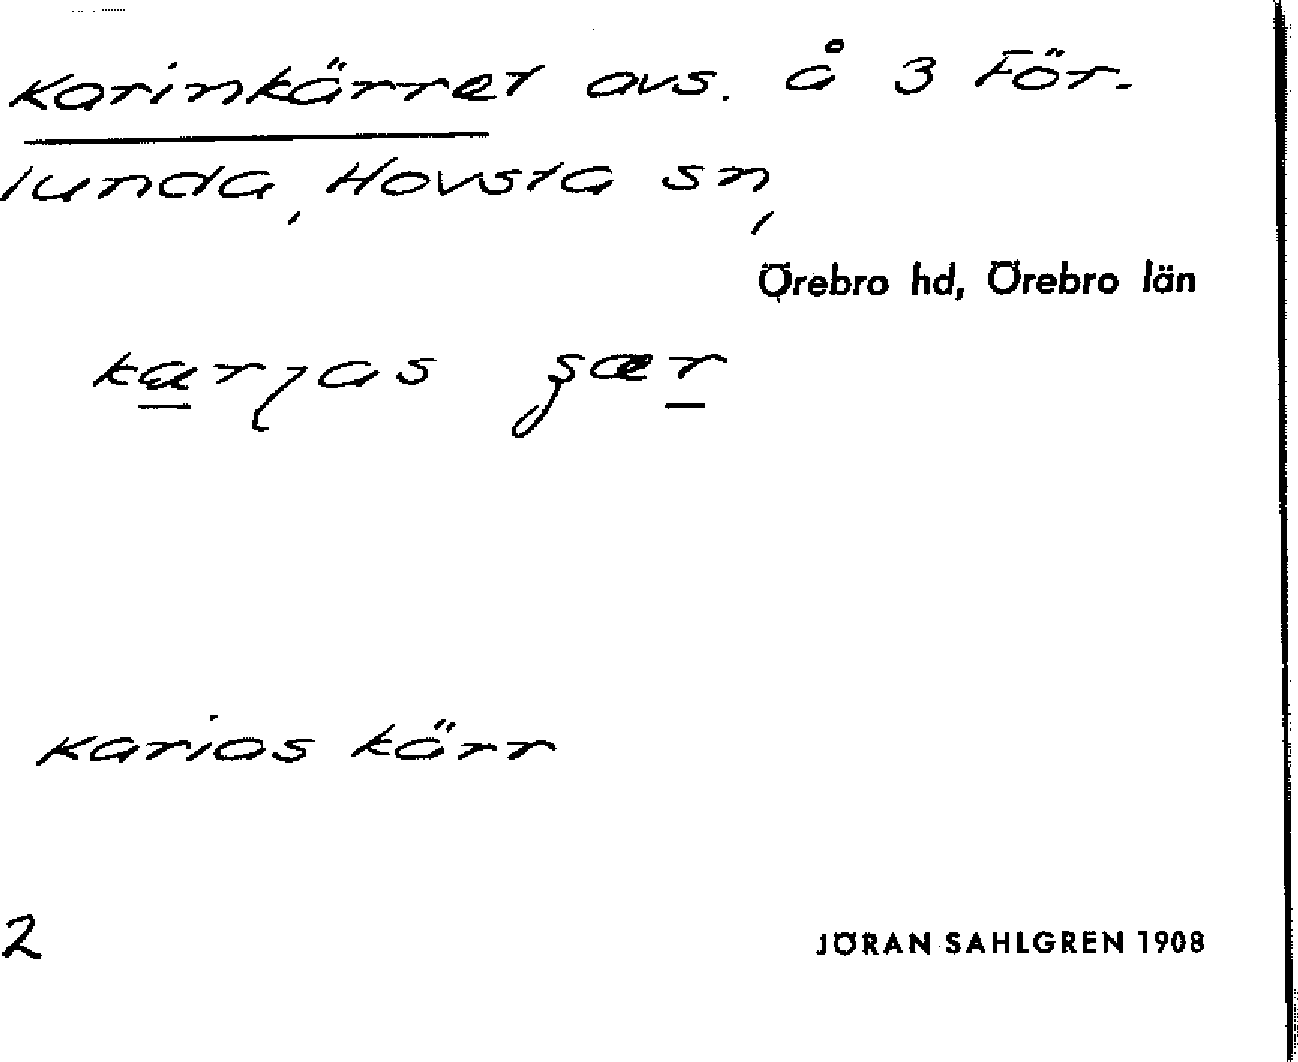 Karinkärret avs. å 3 För-
lunda, Hovsta sn,
Örebro hd, Örebro län
karjas
karias kärr
2
JÖRAN SAHLGREN 1908